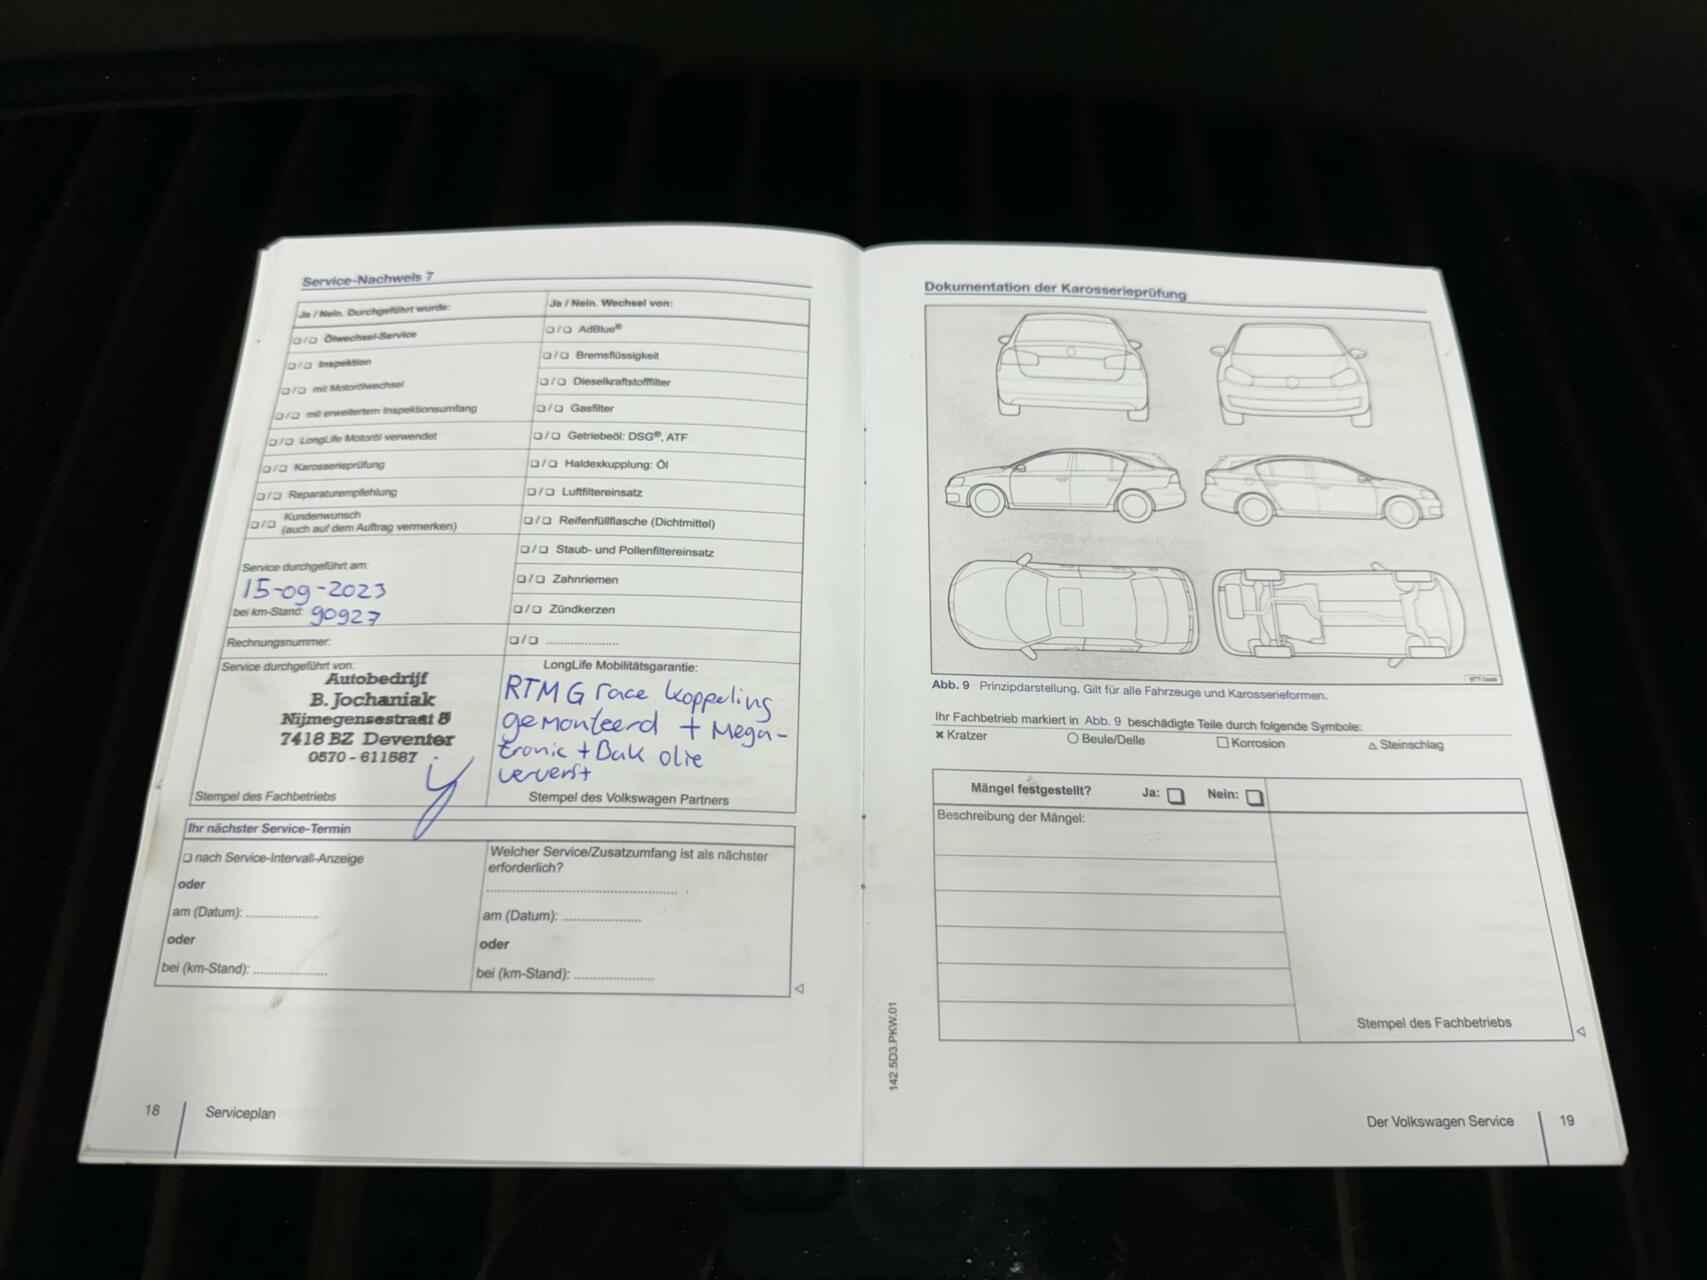 Service-Nachweis 7
Ja / Nein. Durchgeführt wurde:
❑/❑ Ölwechsel-Service
❑/❑ Inspektion
❑/❑ mit Motorölwechsel
❑/❑ mit erweitertem Inspektionsumfang
❑/❑ LongLife Motoröl verwendet
❑/❑ Karosserieprüfung
❑/❑ Reparaturempfehlung
❑/❑ Kundenwunsch
(auch auf dem Auftrag vermerken)
Service durchgeführt am:
15-09-2023
bei km-Stand: 90927
Rechnungsnummer:
Service durchgeführt von:
Autobedrijf
B. Jochaniak
Nijmegensestraat 8
7418 BZ Deventer
0570 - 611587
Stempel des Fachbetriebs
Ja / Nein. Wechsel von:
❑/❑ AdBlue®
❑/❑ Bremsflüssigkeit
❑/❑ Dieselkraftstofffilter
❑/❑ Gasfilter
❑/❑ Getriebeöl: DSG®, ATF
❑/❑ Haldexkupplung: Öl
❑/❑ Luftfiltereinsatz
❑/❑ Reifenfüllflasche (Dichtmittel)
❑/❑ Staub- und Pollenfiltereinsatz
❑/❑ Zahnriemen
❑/❑ Zündkerzen
❑/❑ ....................
LongLife Mobilitätsgarantie:
RTMG race koppeling
gemonteerd + Mega-
tronic + Bak olie
ververst
Stempel des Volkswagen Partners
Ihr nächster Service-Termin
❑ nach Service-Intervall-Anzeige
oder
am (Datum): ....................
oder
bei (km-Stand): ....................
Welcher Service/Zusatzumfang ist als nächster
erforderlich?
....................
am (Datum): ....................
oder
bei (km-Stand): ....................
18 Serviceplan
Dokumentation der Karosserieprüfung
Abb. 9 Prinzipdarstellung. Gilt für alle Fahrzeuge und Karosserieformen.
Ihr Fachbetrieb markiert in Abb. 9 beschädigte Teile durch folgende Symbole:
× Kratzer ○ Beule/Delle □ Korrosion △ Steinschlag
Mängel festgestellt? Ja: ❑ Nein: ❑
Beschreibung der Mängel:
Stempel des Fachbetriebs
142.5D3.PKW.01
Der Volkswagen Service 19